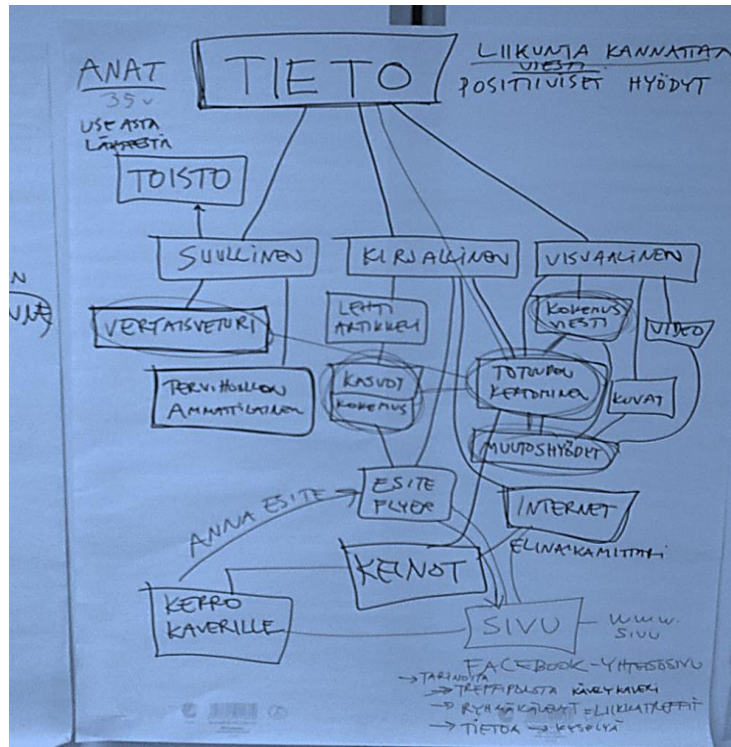 ANAT
35 v
USEASTA
LÄHTEESTÄ
TIETO
LIIKUNTA KANNATTAA
VIESTI
POSITIIVISET HYÖDYT
TOISTO
SUULLINEN
KIRJALLINEN
VISUAALINEN
VERTAISVETURI
LEHTI
ARTIKKELI
KOKEMUS
VIESTI
VIDEO
TERV.HUOLLON
AMMATTILAINEN
KASVOT
KOKEMUS
TOTUUDEN
KERTOMINEN
KUVAT
MUUTOSHYÖDYT
ANNA ESITE
ESITE
FLYER
INTERNET
ELINAIKAMITTARI
KEINOT
KERRO
KAVERILLE
SIVU
www.
SIVU
FACEBOOK-YHTEISÖSIVU
→ TARINOITA
→ TREFFIPALSTA KÄVELYKAVERI
→ RYHMÄKÄVELYT = LIIKKATREFFIT
→ TIETOA → KYSELYÄ